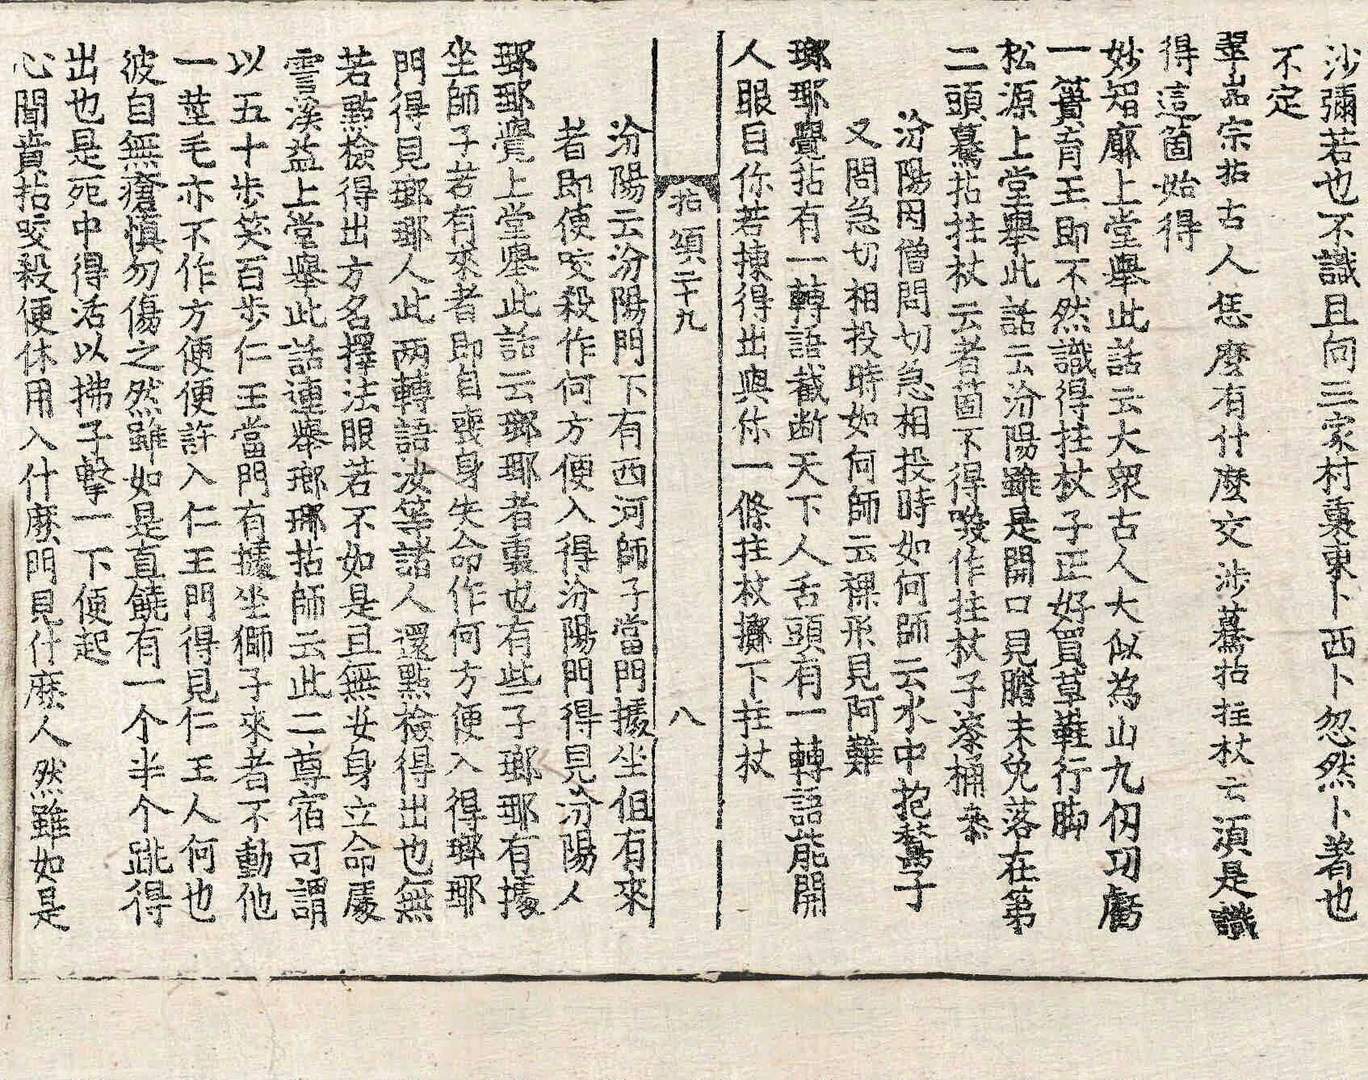 沙彌若也不識且向三家村裏東卜西卜忽然卜著也
不定
翠嵓宗拈古人恁麼有什麼交涉驀拈拄杖云須是識
得這箇始得
妙智廓上堂舉此話云大衆古人大似為山九仞功虧
一簣育王即不然識得拄杖子正好買草鞋行脚
松源上堂舉此話云汾陽雖是開口見膽未免落在第
二頭驀拈拄杖云者箇不得喚作拄杖子漆桶參
汾陽因僧問切急相投時如何師云水中抱鶖子
又問急切相投時如何師云裸形見阿難
瑯琊覺拈有一轉語截断天下人舌頭有一轉語能開
人眼目你若揀得出與你一條拄杖擲下拄杖
拈頌二十九 八
汾陽云汾陽門下有西河師子當門據坐但有來
者即使咬殺作何方便入得汾陽門得見汾陽人
瑯琊覺上堂舉此話云瑯琊者裏也有些子瑯琊有據
坐師子若有來者即自喪身失命作何方便入得瑯琊
門得見瑯琊人此两轉語汝等諸人還點檢得出也無
若點檢得出方名擇法眼若不如是且無安身立命處
霅溪益上堂舉此話連舉瑯琊拈師云此二尊宿可謂
以五十步笑百步仁王當門有據坐獅子來者不動他
一莖毛亦不作方便便許入仁王門得見仁王人何也
彼自無瘡慎勿傷之然雖如是直饒有一个半个跳得
出也是死中得活以拂子擊一下便起
心聞賁拈咬殺便休用入什麼門見什麼人然雖如是